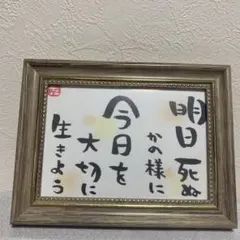 明日死ぬ
かの様に
今日を
大切に
生きよう